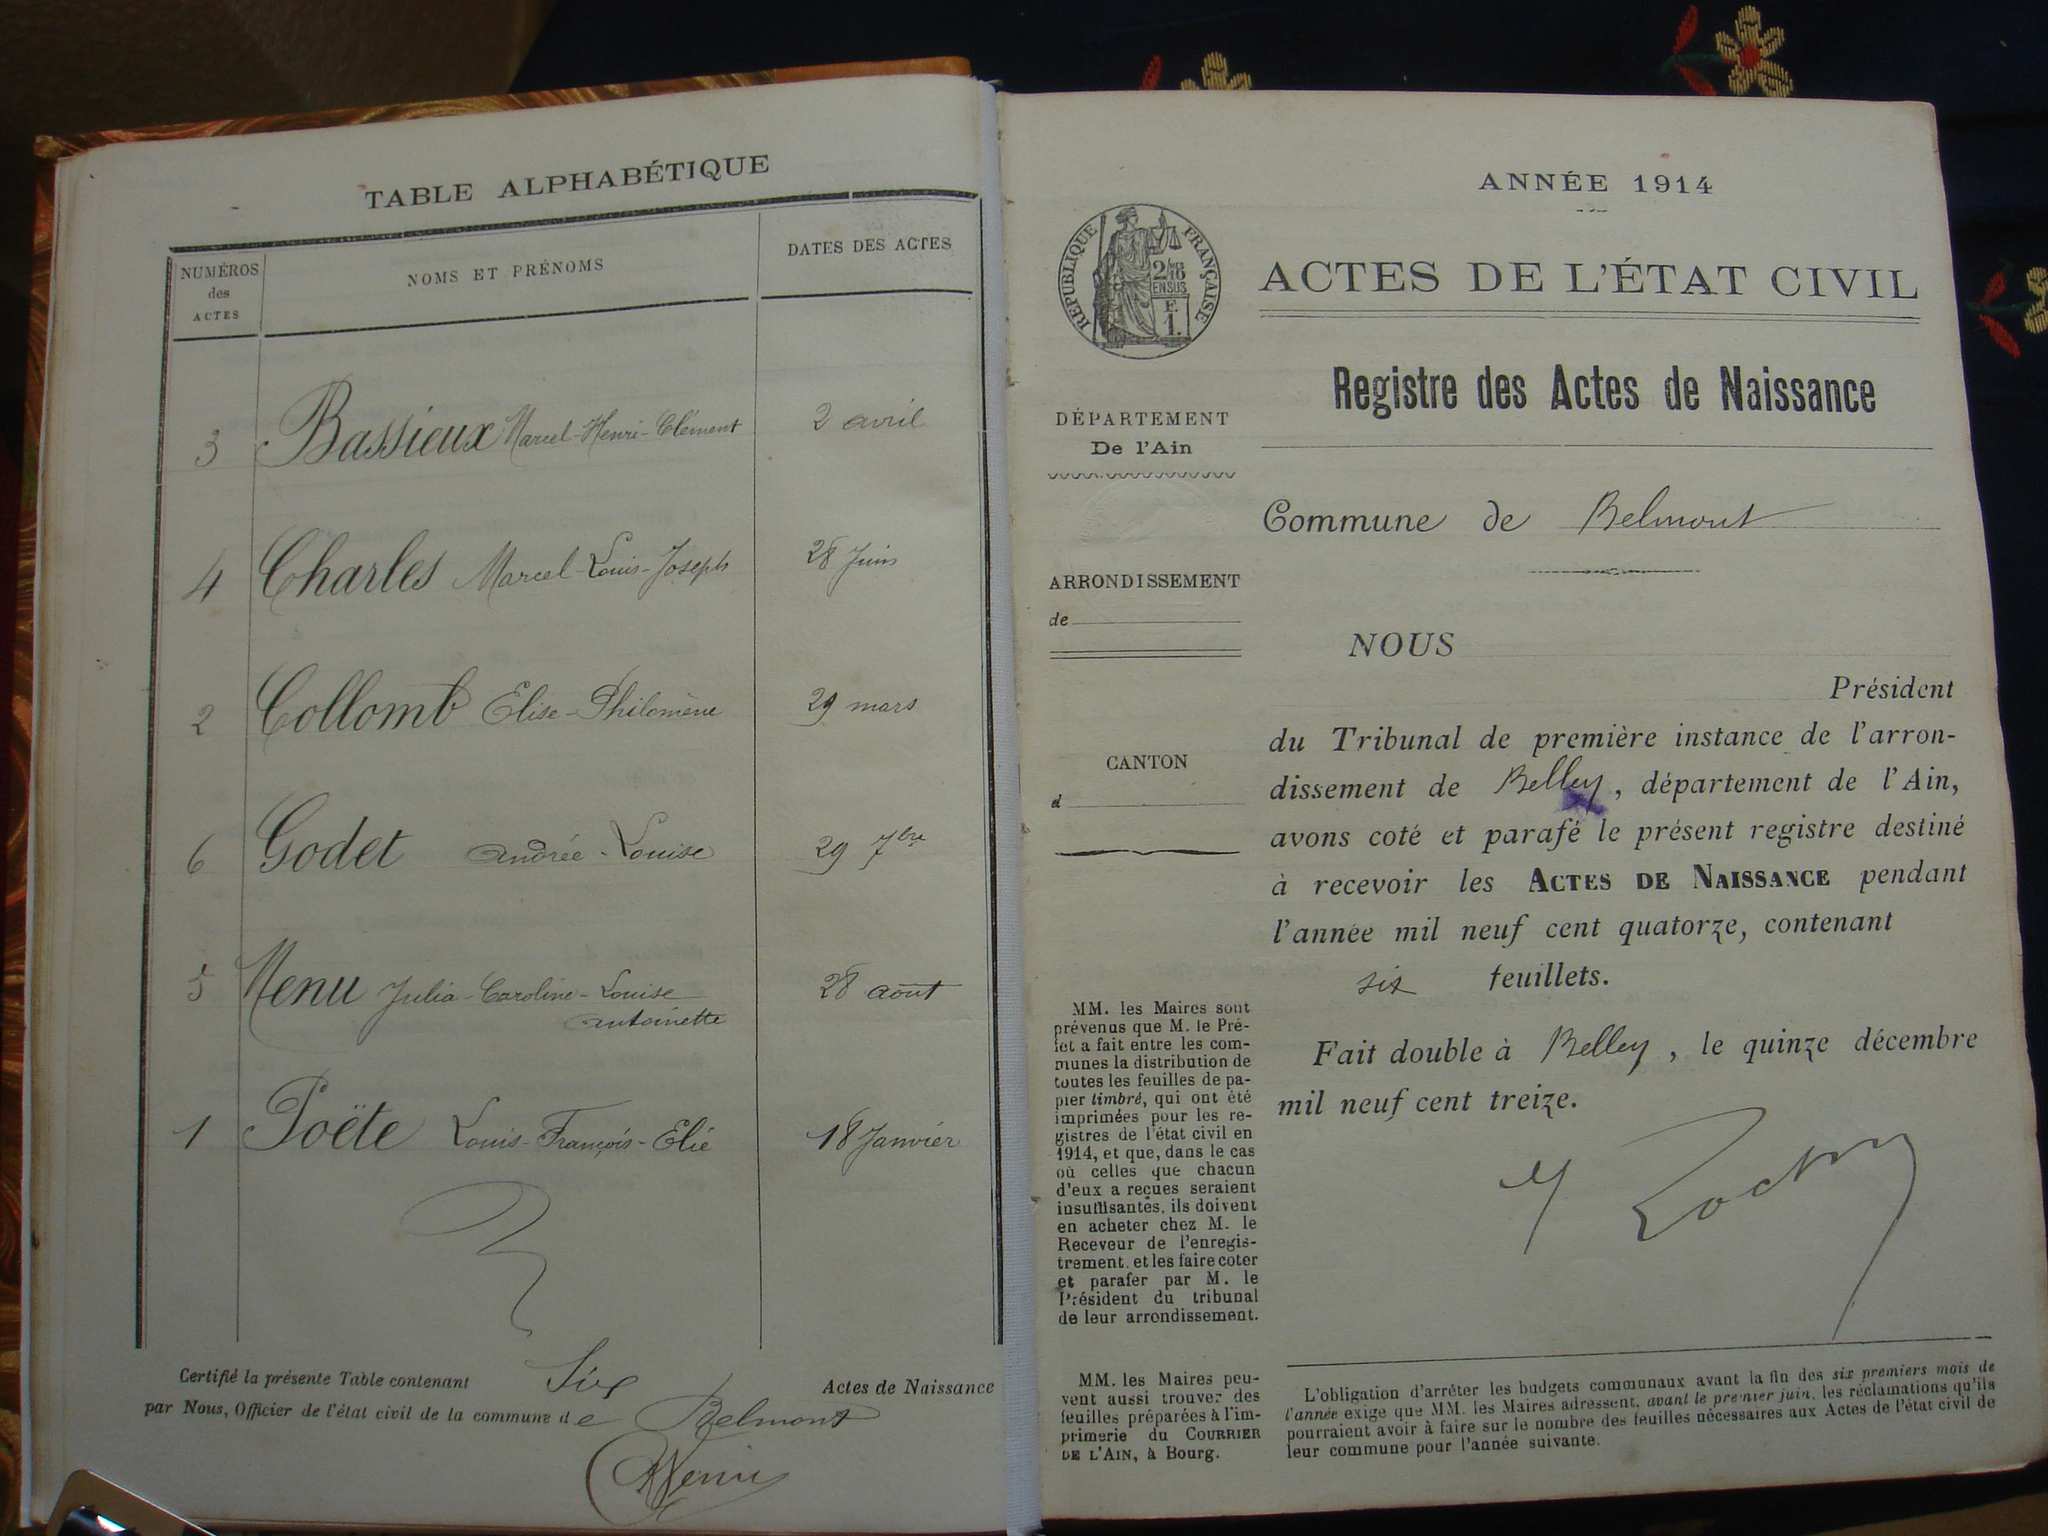 TABLE ALPHABÉTIQUE
NUMÉROS
des
ACTES
NOMS ET PRÉNOMS
DATES DES ACTES
3 Bassieux Marcel-Henri-Clément 2 avril
4 Charles Marcel-Louis-Joseph 28 Juin
2 Collomb Elise-Philomène 29 mars
6 Godet Andrée-Louise 29 7bre
5 Menu Julia-Caroline-Louise 28 août
Antoinette
1 Poëte Louis-François-Elie 18 Janvier
Certifié la présente Table contenant Six Actes de Naissance
par Nous, Officier de l'état civil de la commune de Belmont
ANNÉE 1914
RÉPUBLIQUE FRANÇAISE
ACTES DE L'ÉTAT CIVIL
Registre des Actes de Naissance
DÉPARTEMENT
De l'Ain
Commune de Belmont
ARRONDISSEMENT
de
CANTON
d
NOUS
Président
du Tribunal de première instance de l'arron-
dissement de Belley, département de l'Ain,
avons coté et parafé le présent registre destiné
à recevoir les ACTES DE NAISSANCE pendant
l'année mil neuf cent quatorze, contenant
six feuillets.
Fait double à Belley, le quinze décembre
mil neuf cent treize.
MM. les Maires sont
prévenus que M. le Pré-
fet a fait entre les com-
munes la distribution de
toutes les feuilles de pa-
pier timbré, qui ont été
imprimées pour les re-
gistres de l'état civil en
1914, et que, dans le cas
où celles que chacun
d'eux a reçues seraient
insuffisantes, ils doivent
en acheter chez M. le
Receveur de l'enregis-
trement, et les faire coter
et parafer par M. le
Président du tribunal
de leur arrondissement.
MM. les Maires peu-
vent aussi trouver des
feuilles préparées à l'im-
primerie du COURRIER
DE L'AIN, à Bourg.
L'obligation d'arrêter les budgets communaux avant la fin des six premiers mois de
l'année exige que MM. les Maires adressent, avant le premier juin, les réclamations qu'ils
pourraient avoir à faire sur le nombre des feuilles nécessaires aux Actes de l'état civil de
leur commune pour l'année suivante.